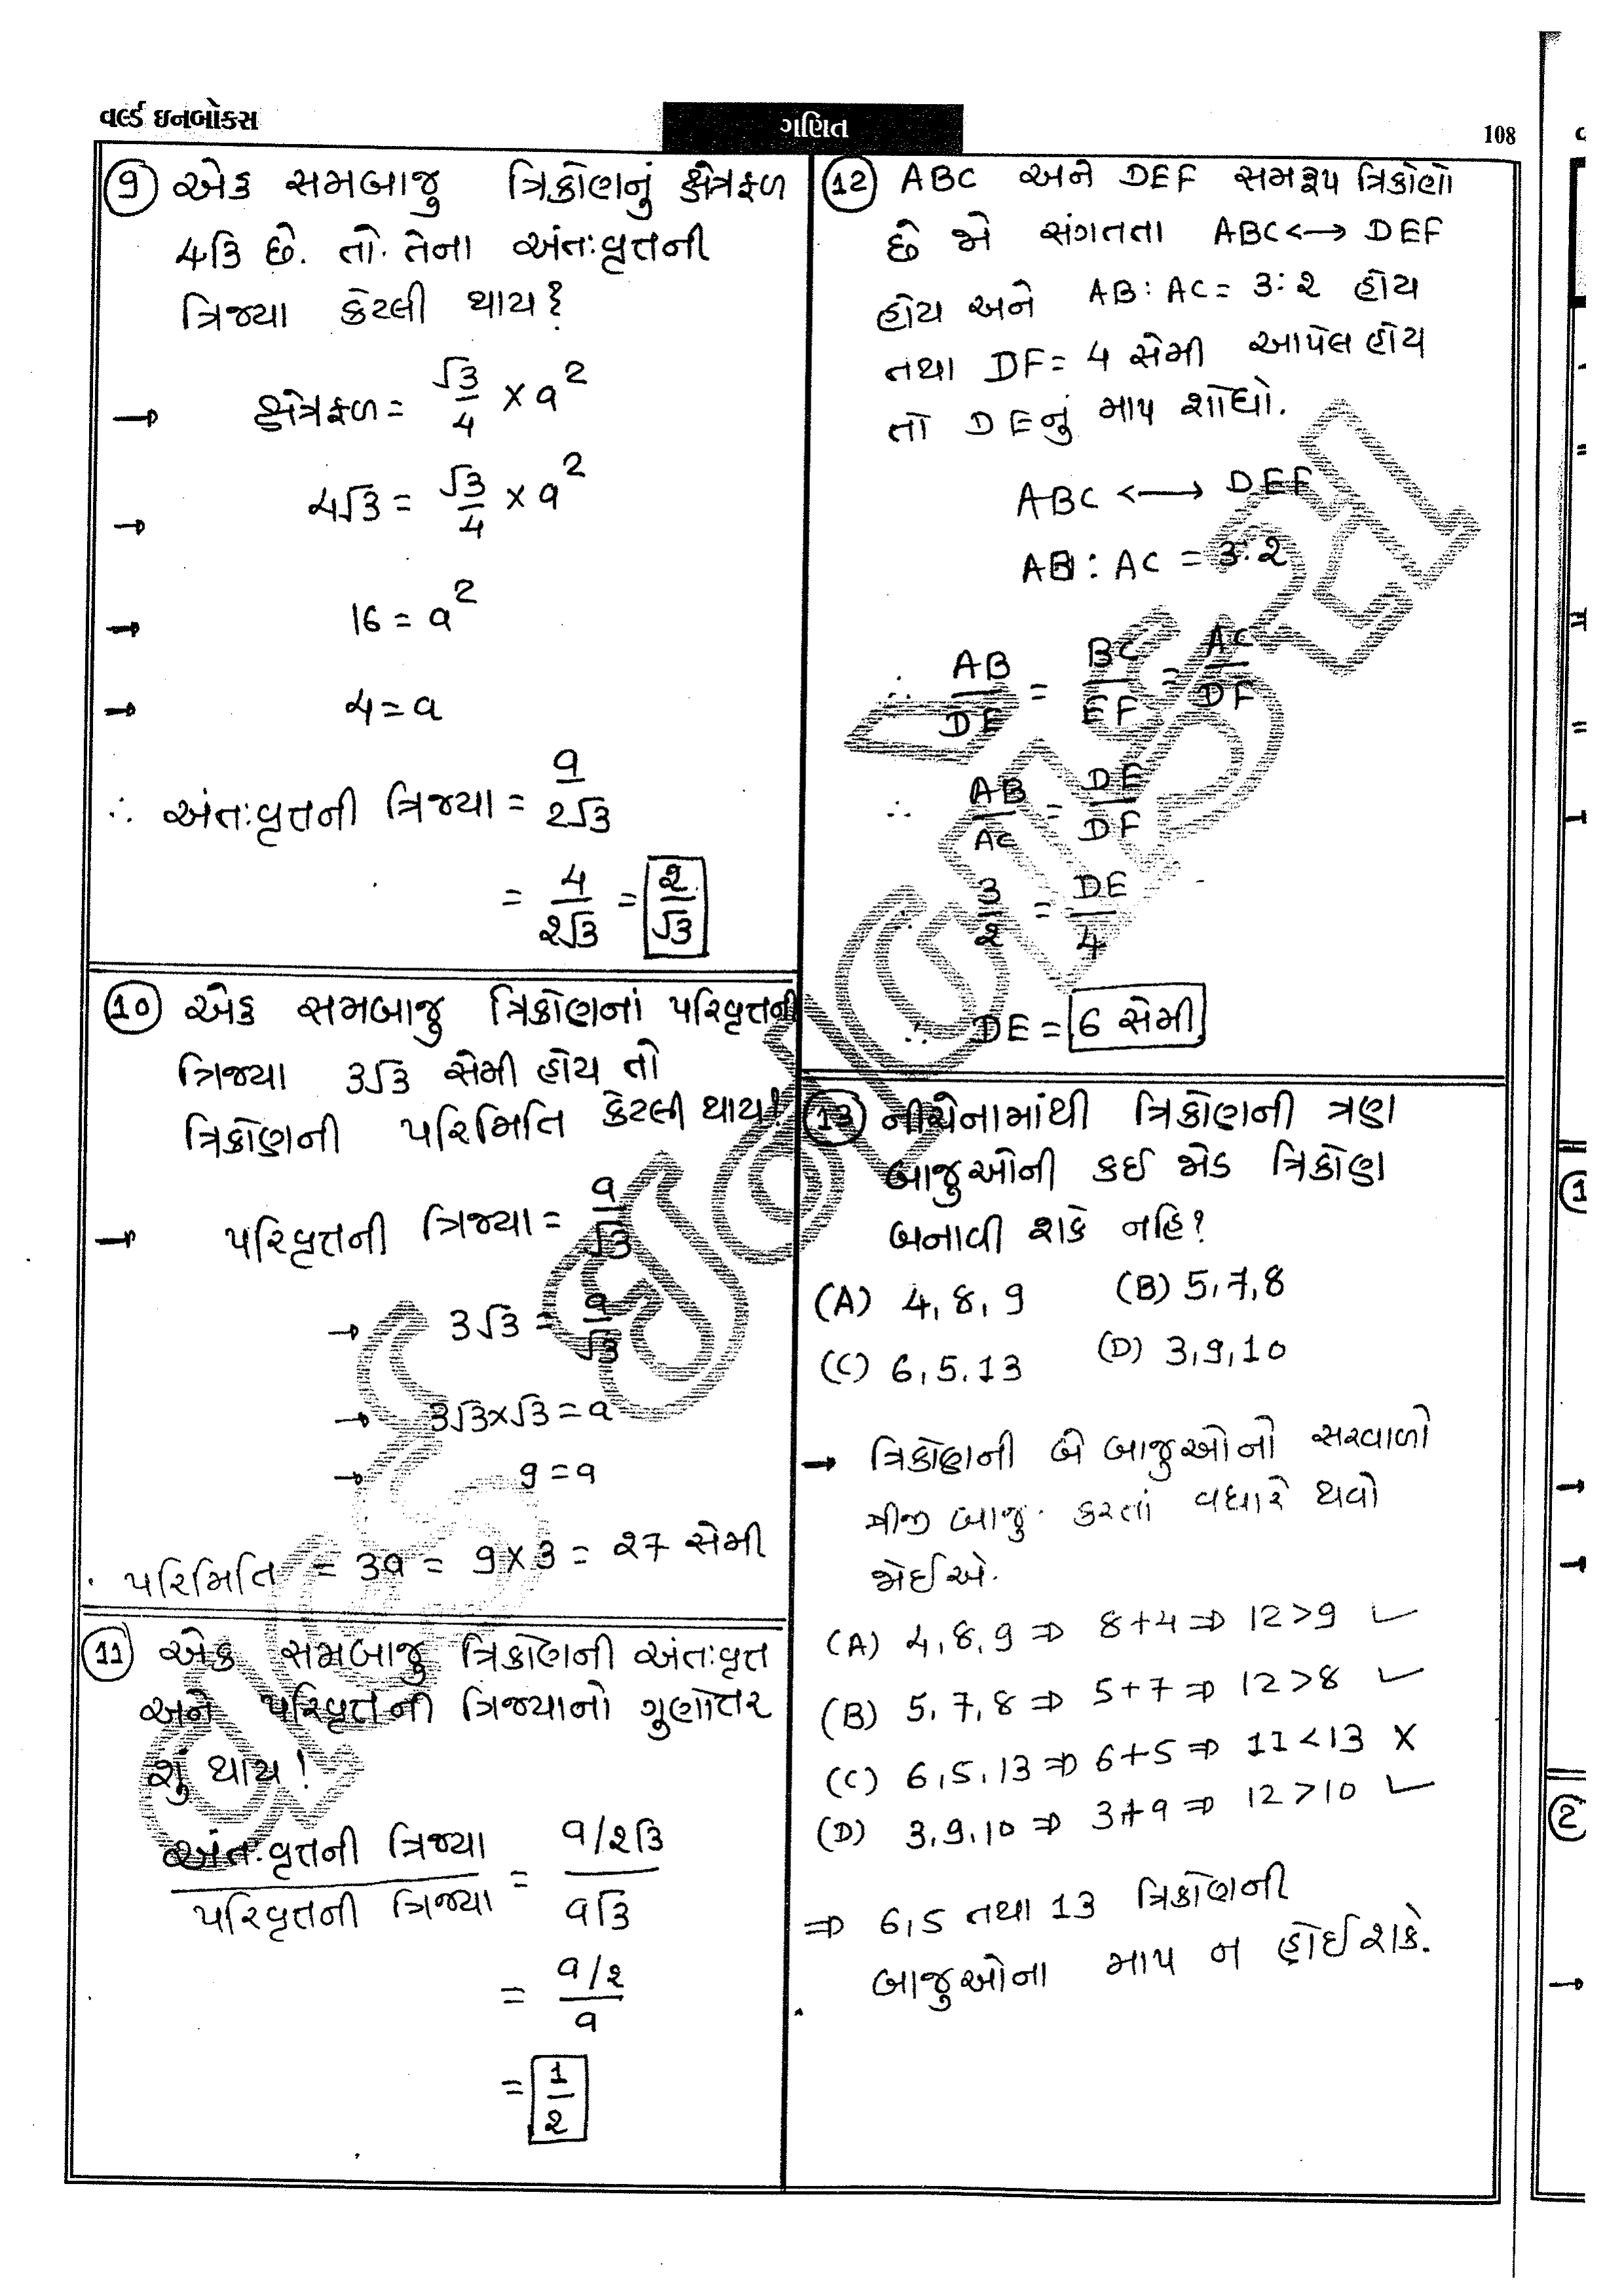 વર્લ્ડ ઇનબોક્સ
ગણિત
108
9 એક સમબાજુ ત્રિકોણનું ક્ષેત્રફળ
4√3 છે. તો તેના અંતઃવૃત્તની
ત્રિજ્યા કેટલી થાય?
→ ક્ષેત્રફળ = √3/4 × a²
→ 4√3 = √3/4 × a²
→ 16 = a²
→ 4 = a
∴ અંતઃવૃત્તની ત્રિજ્યા = a/2√3
= 4/૨√3 = ૨/√3
10 એક સમબાજુ ત્રિકોણનાં પરિવૃત્તની
ત્રિજ્યા 3√3 સેમી હોય તો
ત્રિકોણની પરિમિતિ કેટલી થાય!
→ પરિવૃત્તની ત્રિજ્યા = a/√3
→ 3√3 = a/√3
→ 3√3×√3 = a
→ 9 = a
∴ પરિમિતિ = 3a = 9×3 = ૨7 સેમી
11 એક સમબાજુ ત્રિકોણની અંતઃવૃત્ત
અને પરિવૃત્તની ત્રિજ્યાનો ગુણોત્તર
શું થાય!
અંતઃવૃત્તની ત્રિજ્યા / પરિવૃત્તની ત્રિજ્યા = a/૨√3 / a√3
= a/૨ / a
= 1/૨
12 ABC અને DEF સમરૂપ ત્રિકોણો
છે જો સંગતતા ABC ↔ DEF
હોય અને AB : AC = 3:૨ હોય
તથા DF = 4 સેમી આપેલ હોય
તો DE નું માપ શોધો.
ABC ↔ DEF
AB : AC = 3:૨
∴ AB/DE = BC/EF = AC/DF
∴ AB/AC = DE/DF
∴ 3/૨ = DE/4
∴ DE = 6 સેમી
13 નીચેનામાંથી ત્રિકોણની ત્રણ
બાજુઓની કઈ જોડ ત્રિકોણ
બનાવી શકે નહિ?
(A) 4, 8, 9 (B) 5, 7, 8
(C) 6, 5. 13 (D) 3, 9, 10
→ ત્રિકોણની બે બાજુઓનો સરવાળો
ત્રીજી બાજુ કરતાં વધારે થવો
જોઈએ.
(A) 4, 8, 9 ⇒ 8+4 ⇒ 12 > 9 ✓
(B) 5, 7, 8 ⇒ 5+7 ⇒ 12 > 8 ✓
(C) 6, 5, 13 ⇒ 6+5 ⇒ 11 < 13 X
(D) 3, 9, 10 ⇒ 3+9 ⇒ 12 > 10 ✓
⇒ 6, 5 તથા 13 ત્રિકોણની
બાજુઓના માપ ન હોઈ શકે.